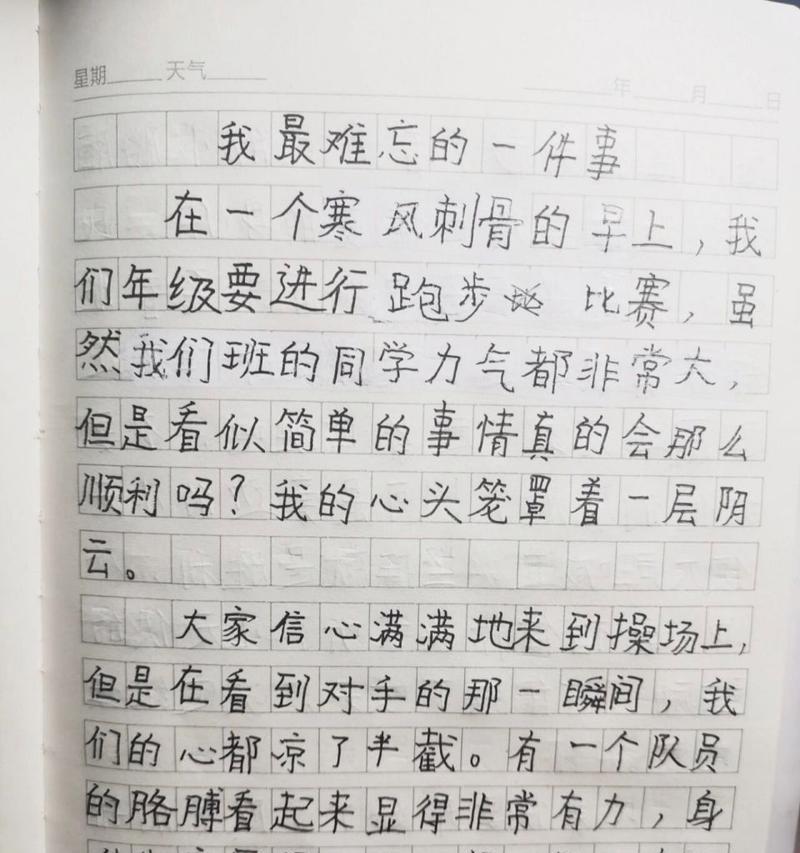 星期 天气 年 月 日
我最难忘的一件事
在一个寒风刺骨的早上，我
们年级要进行跑步比赛，虽
然我们班的同学力气都非常大，
但是看似简单的事情真的会那么
顺利吗？我的心头笼罩着一层阴
云。
大家信心满满地来到操场上，
但是在看到对手的那一瞬间，我
们的心都凉了半截。有一个队员
的胳膊看起来显得非常有力，身